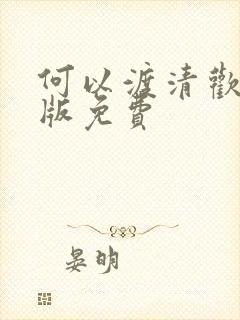 何以渡清歡
版免費
晏明